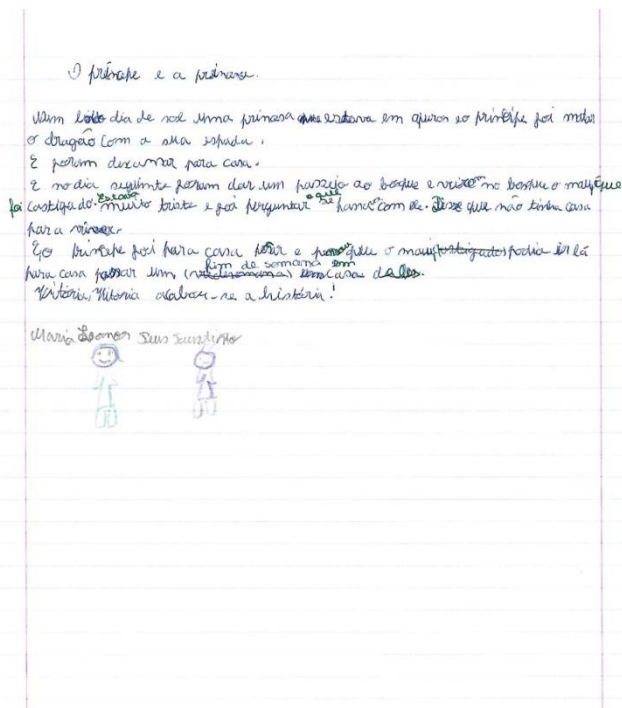 O príncipe e a princesa.
Num lindo dia de sol uma princesa que estava em apuros e o príncipe foi matar
o dragão com a sua espada.
E foram descansar para casa.
E no dia seguinte foram dar um passeio ao bosque e no bosque o mau, que
foi castigado. Estava muito triste e foi perguntar o que se com ele. Disse que não tinha casa
para viver.
E o príncipe foi para casa e que o mau podia ir lá
para casa passar um fim de semana em casa deles.
Vitória, Vitória acabou-se a história!
Maria Leonor